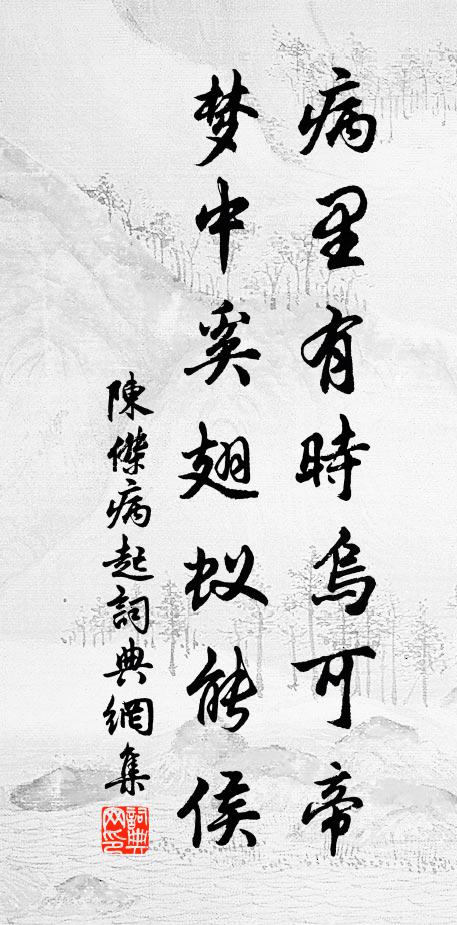 病里有時烏可帝
梦中奚翅蚁能侯
陳傑病起詞典網集
詞典網印